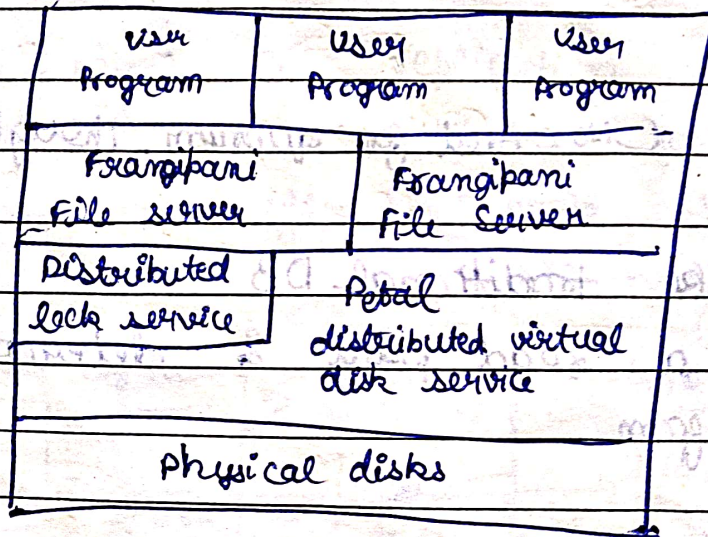 User
Program
User
Program
User
Program
Frangipani
File server
Frangipani
File Server
Distributed
lock service
Petal
distributed virtual
disk service
Physical disks